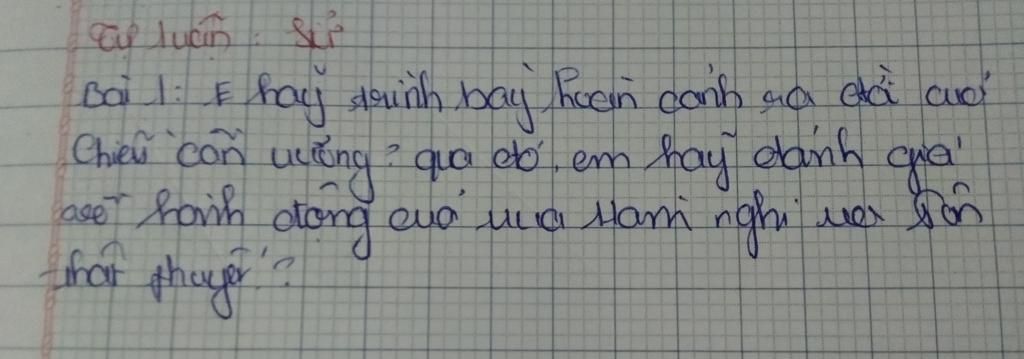 Tự luận: Sử
Bài 1: E hãy trình bày hoàn cảnh ra đời của
Chiếu cần vương? qua đó, em hãy đánh giá
hành động của vua Hàm nghi và Tôn
thất thuyết?